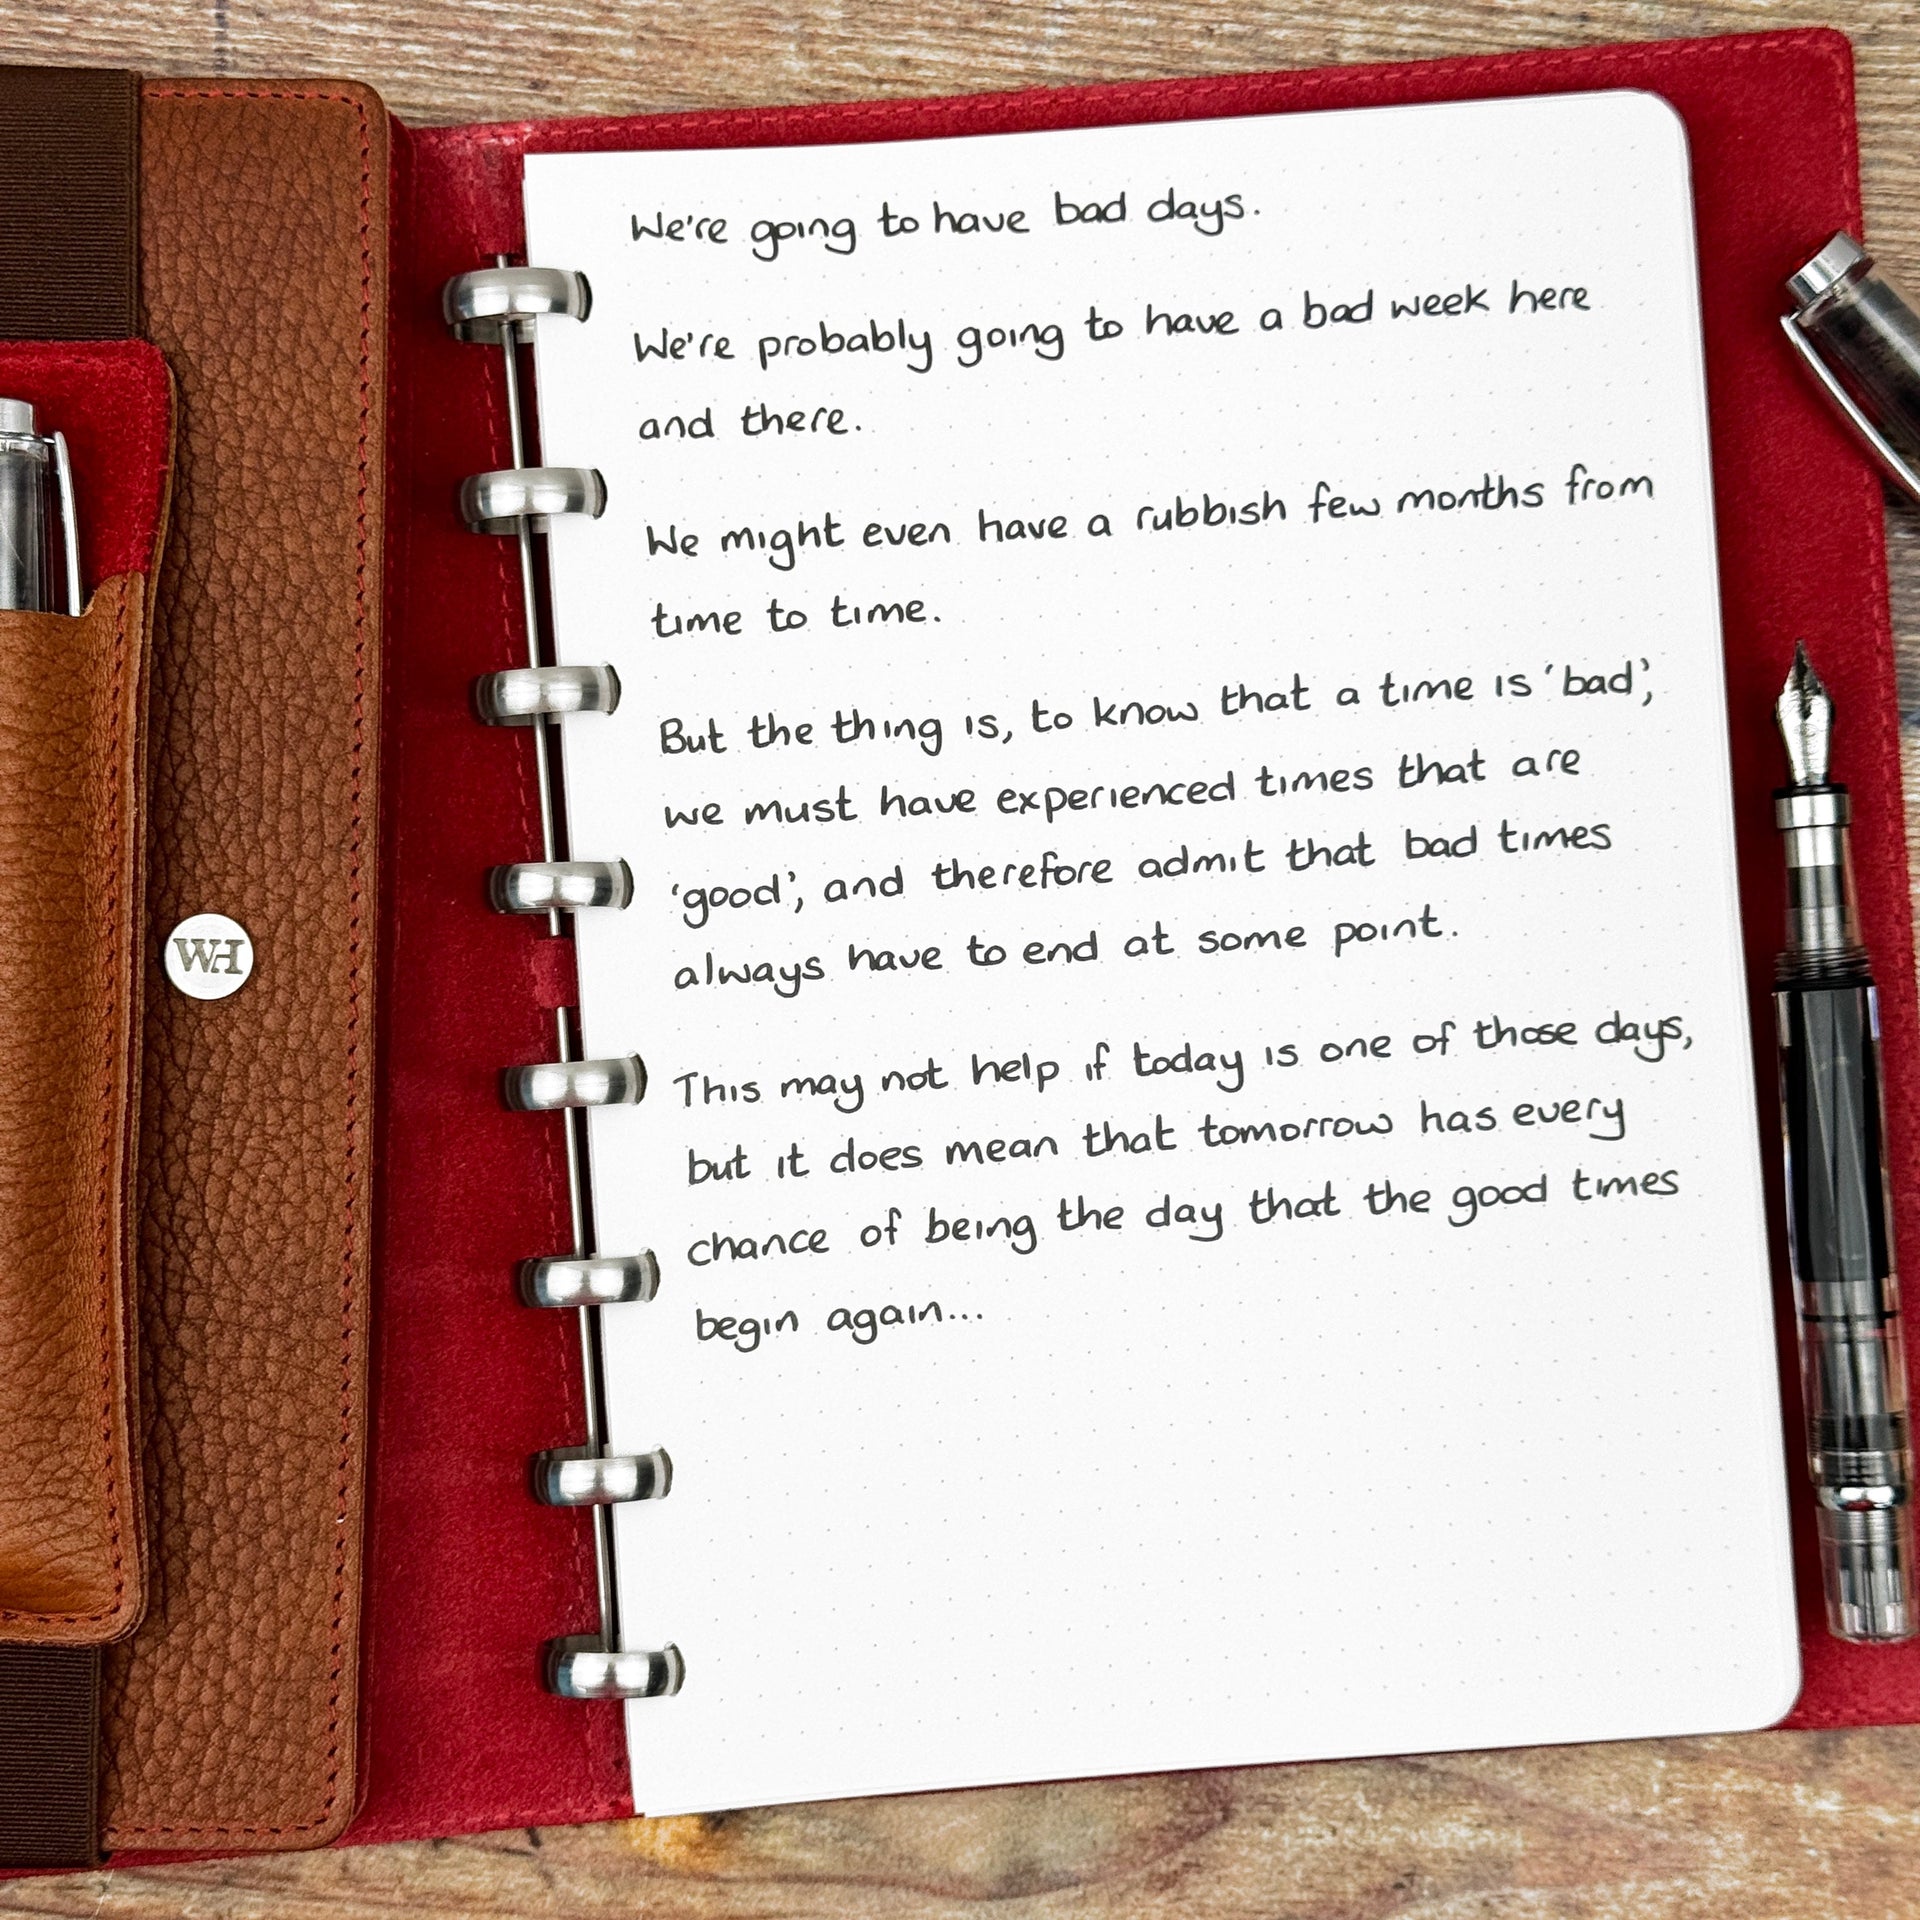 We're going to have bad days.
We're probably going to have a bad week here
and there.
We might even have a rubbish few months from
time to time.
But the thing is, to know that a time is 'bad',
we must have experienced times that are
'good', and therefore admit that bad times
always have to end at some point.
This may not help if today is one of those days,
but it does mean that tomorrow has every
chance of being the day that the good times
begin again...
WH